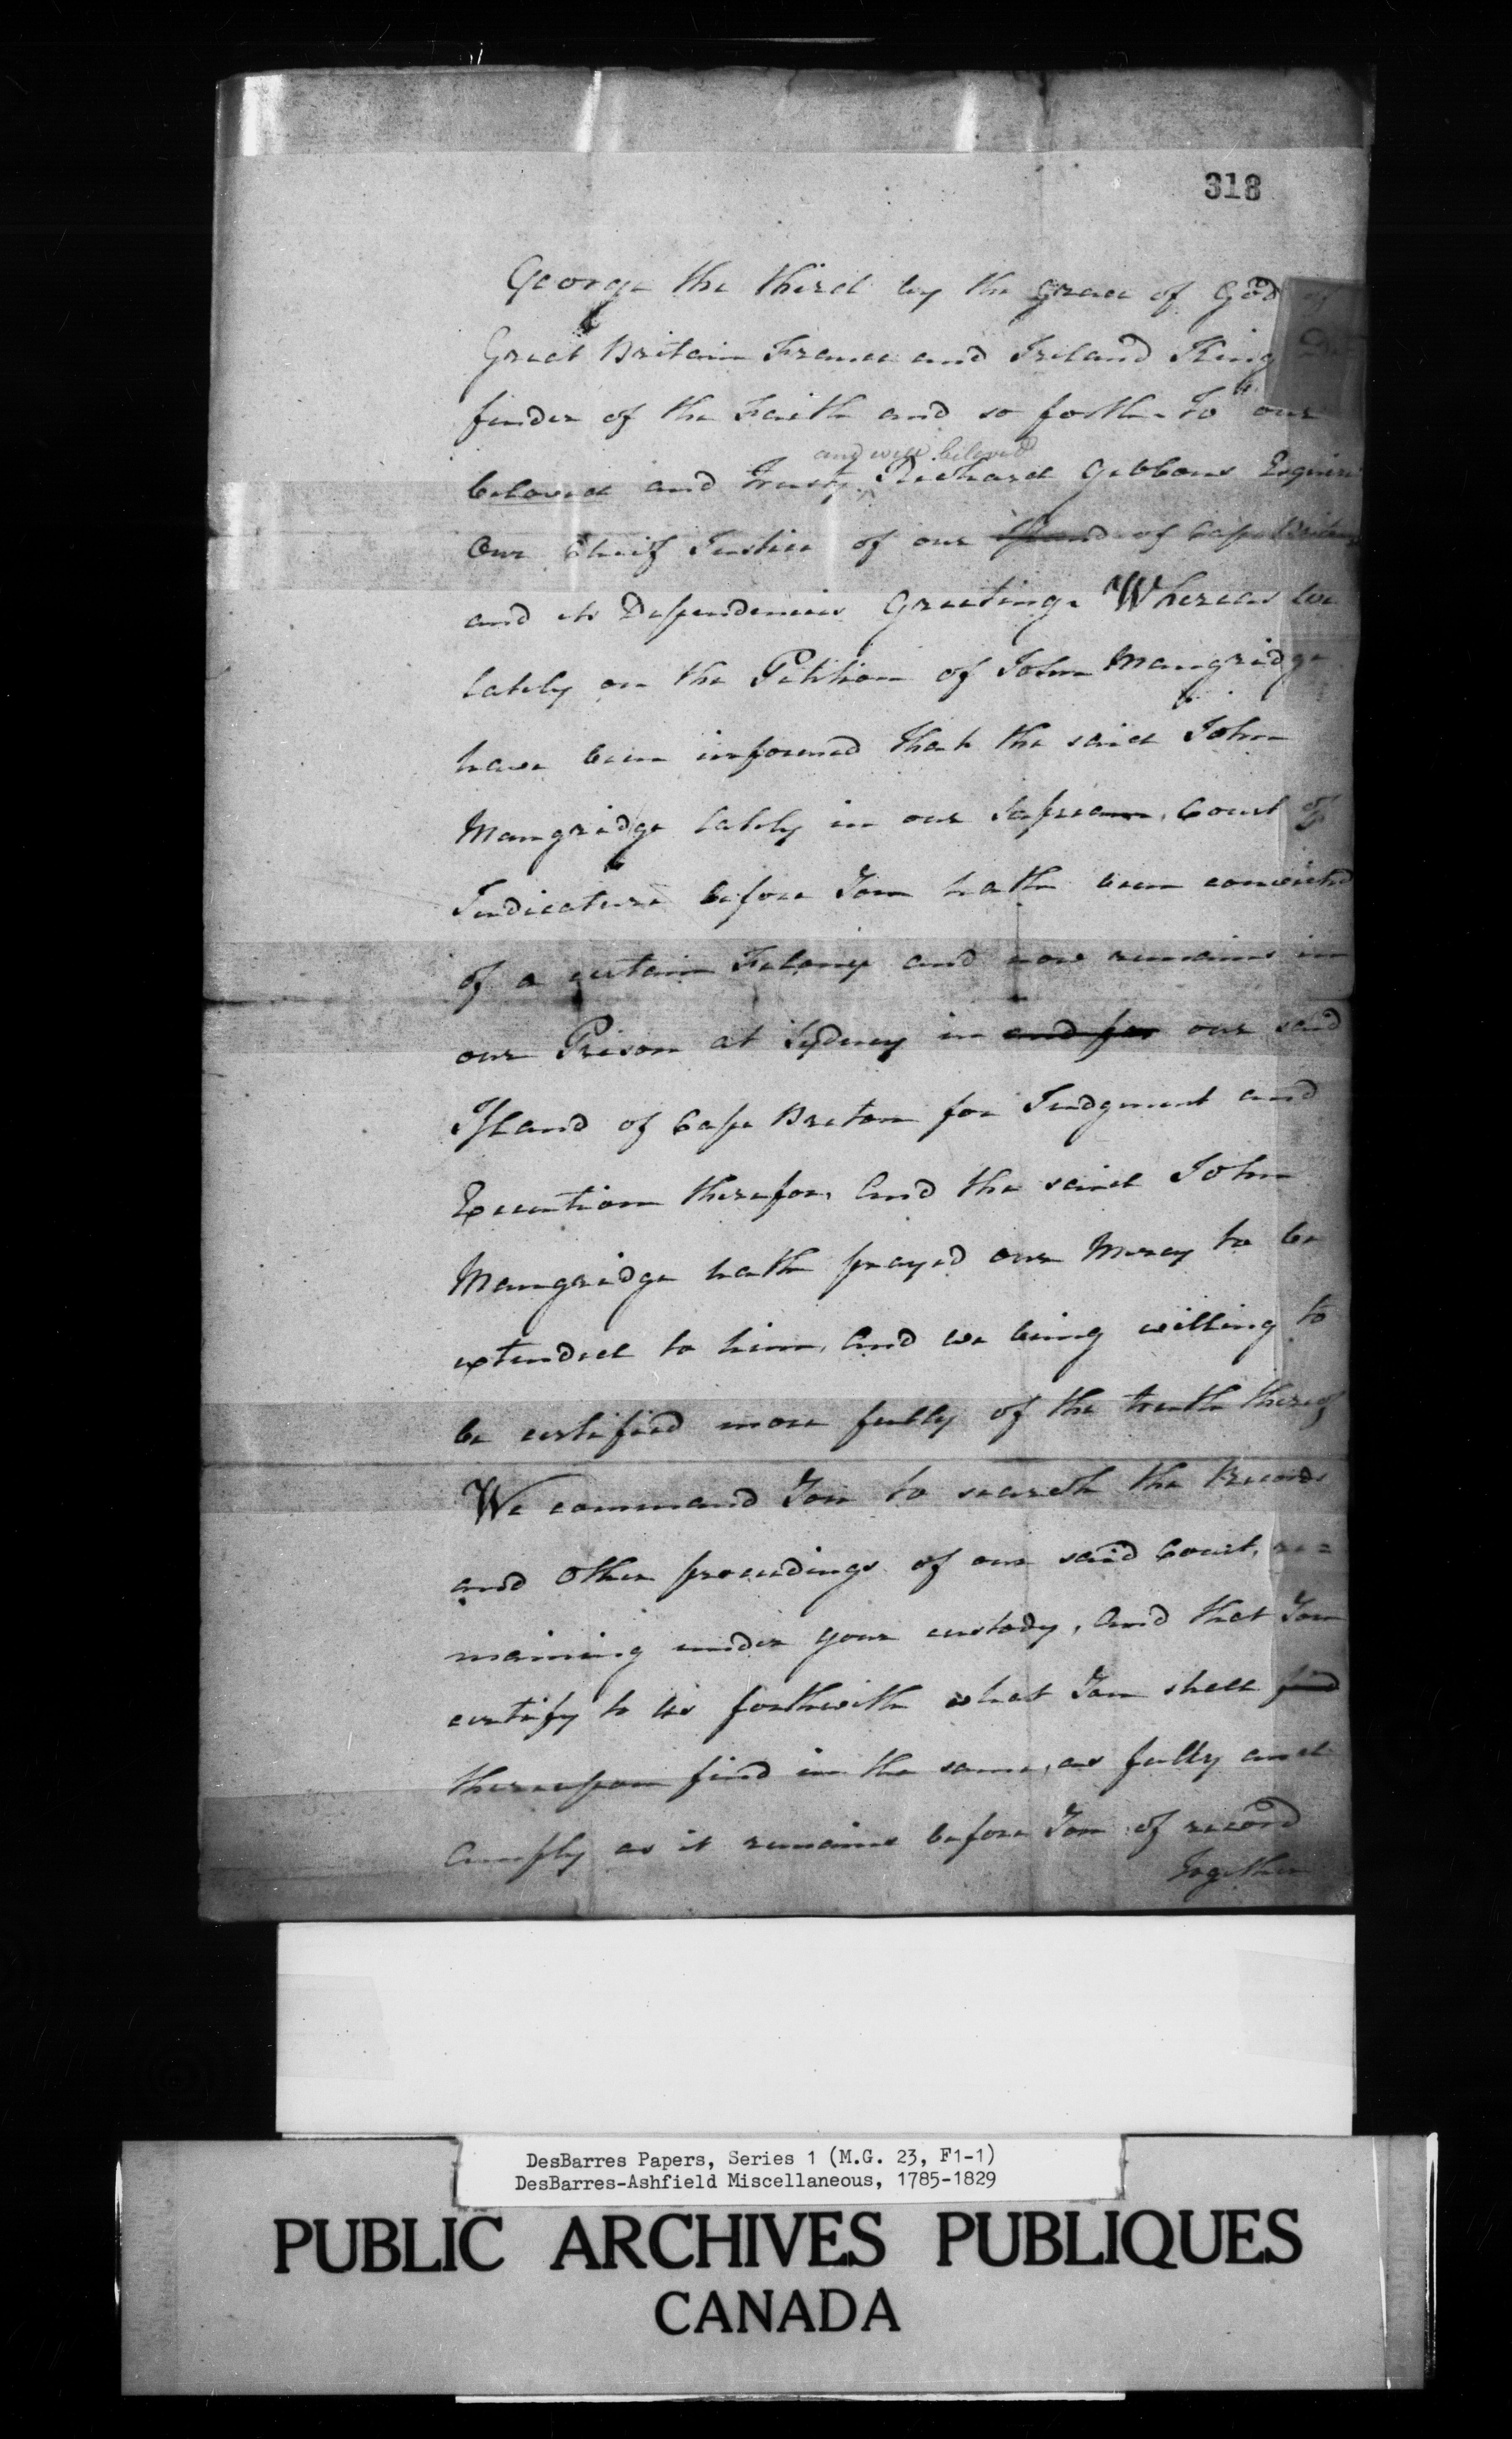 318
George the third by the Grace of God of
Great Britain France and Ireland King
fender of the Faith and so forth. To our
and well beloved
beloved and trusty Richard Gibbons Esquire
Our Cheif Justice of our Island of Cape Breton
and its Dependencies Greeting. Whereas We
lately on the Petition of John Mangridge
have been informed that the said John
Mangridge lately in our Supream Court of
Judicature before You hath been convicted
of a certain Felony and now remains in
our Prison at Sydney in and for our said
Island of Cape Breton for Judgment and
Execution therefor, And the said John
Mangridge hath prayed our Mercy to be
extended to him, And we being willing to
be certified more fully of the truth thereof
We command You to search the Records
and Other proceedings of our said Court, re=
maining under your custody, And that You
certify to Us forthwith what You shall find
thereupon find in the same, as fully and
Amply as it remains before You of record
Together
DesBarres Papers, Series 1 (M.G. 23, F1-1)
DesBarres-Ashfield Miscellaneous, 1785-1829
PUBLIC ARCHIVES PUBLIQUES
CANADA